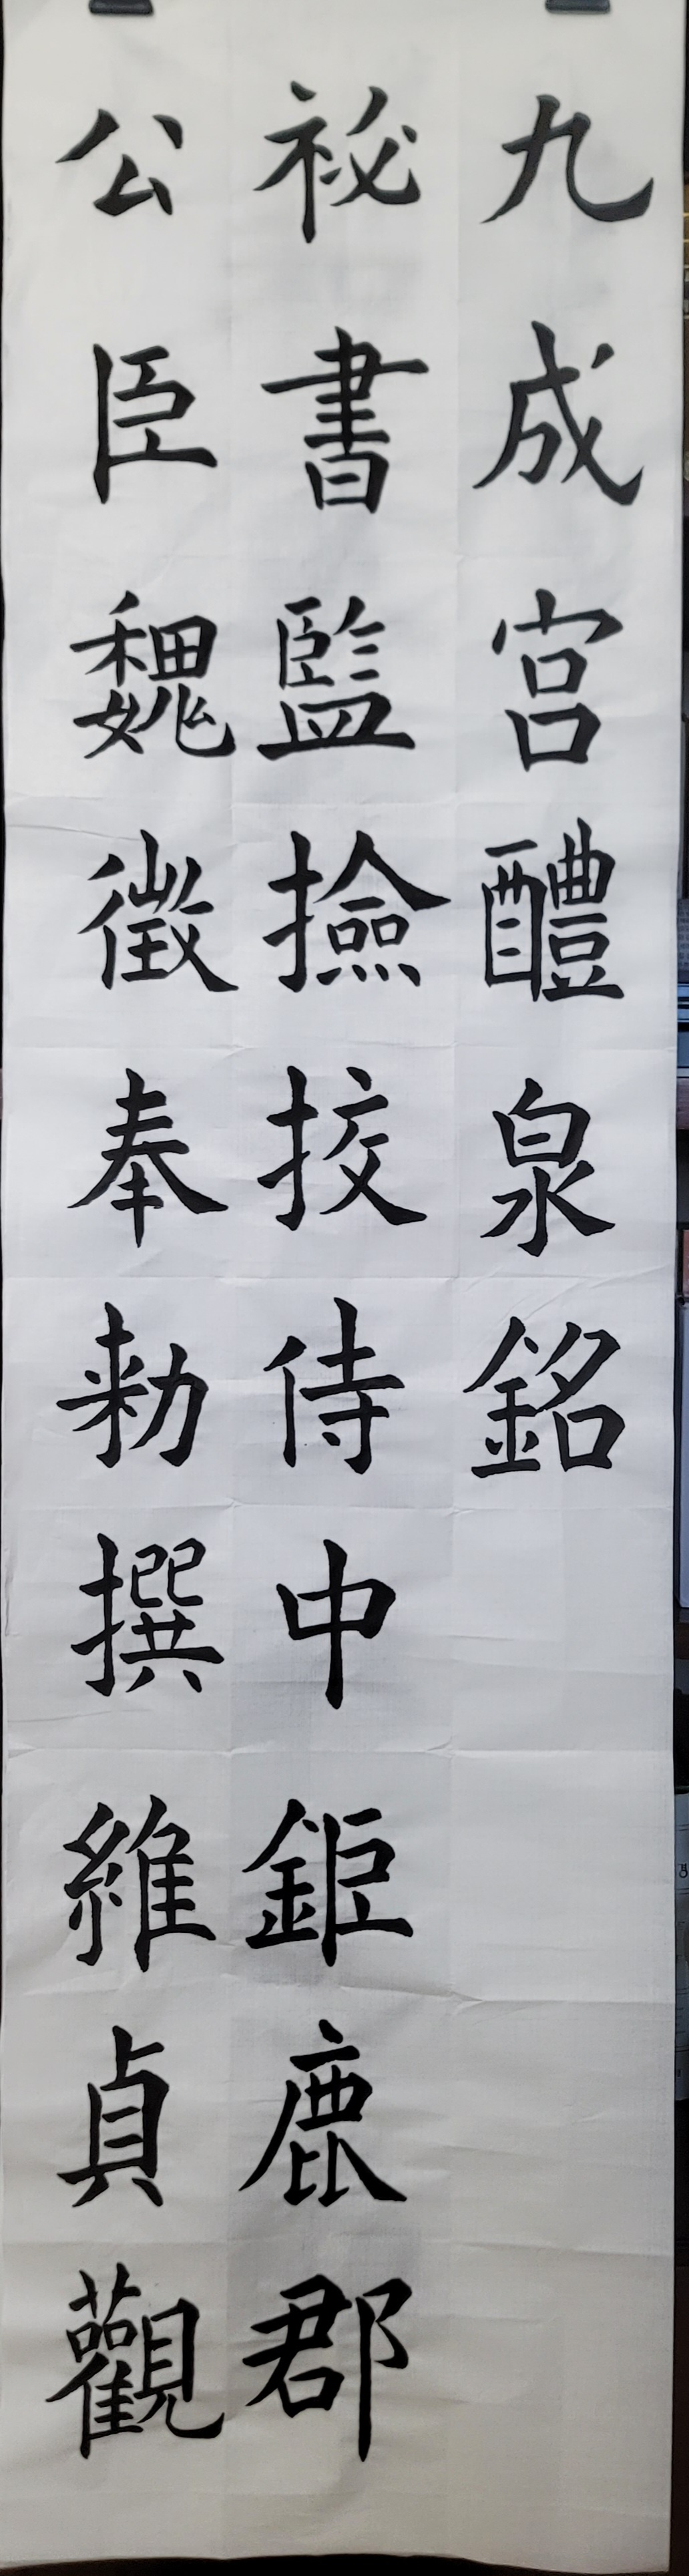 九成宮醴泉銘
祕書監撿挍侍中鉅鹿郡
公臣魏徵奉勑撰維貞觀